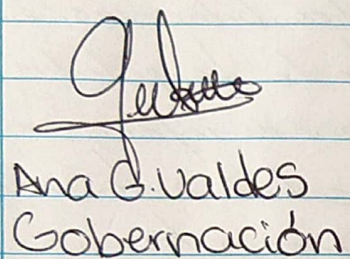 Ana G. Valdes
Gobernación